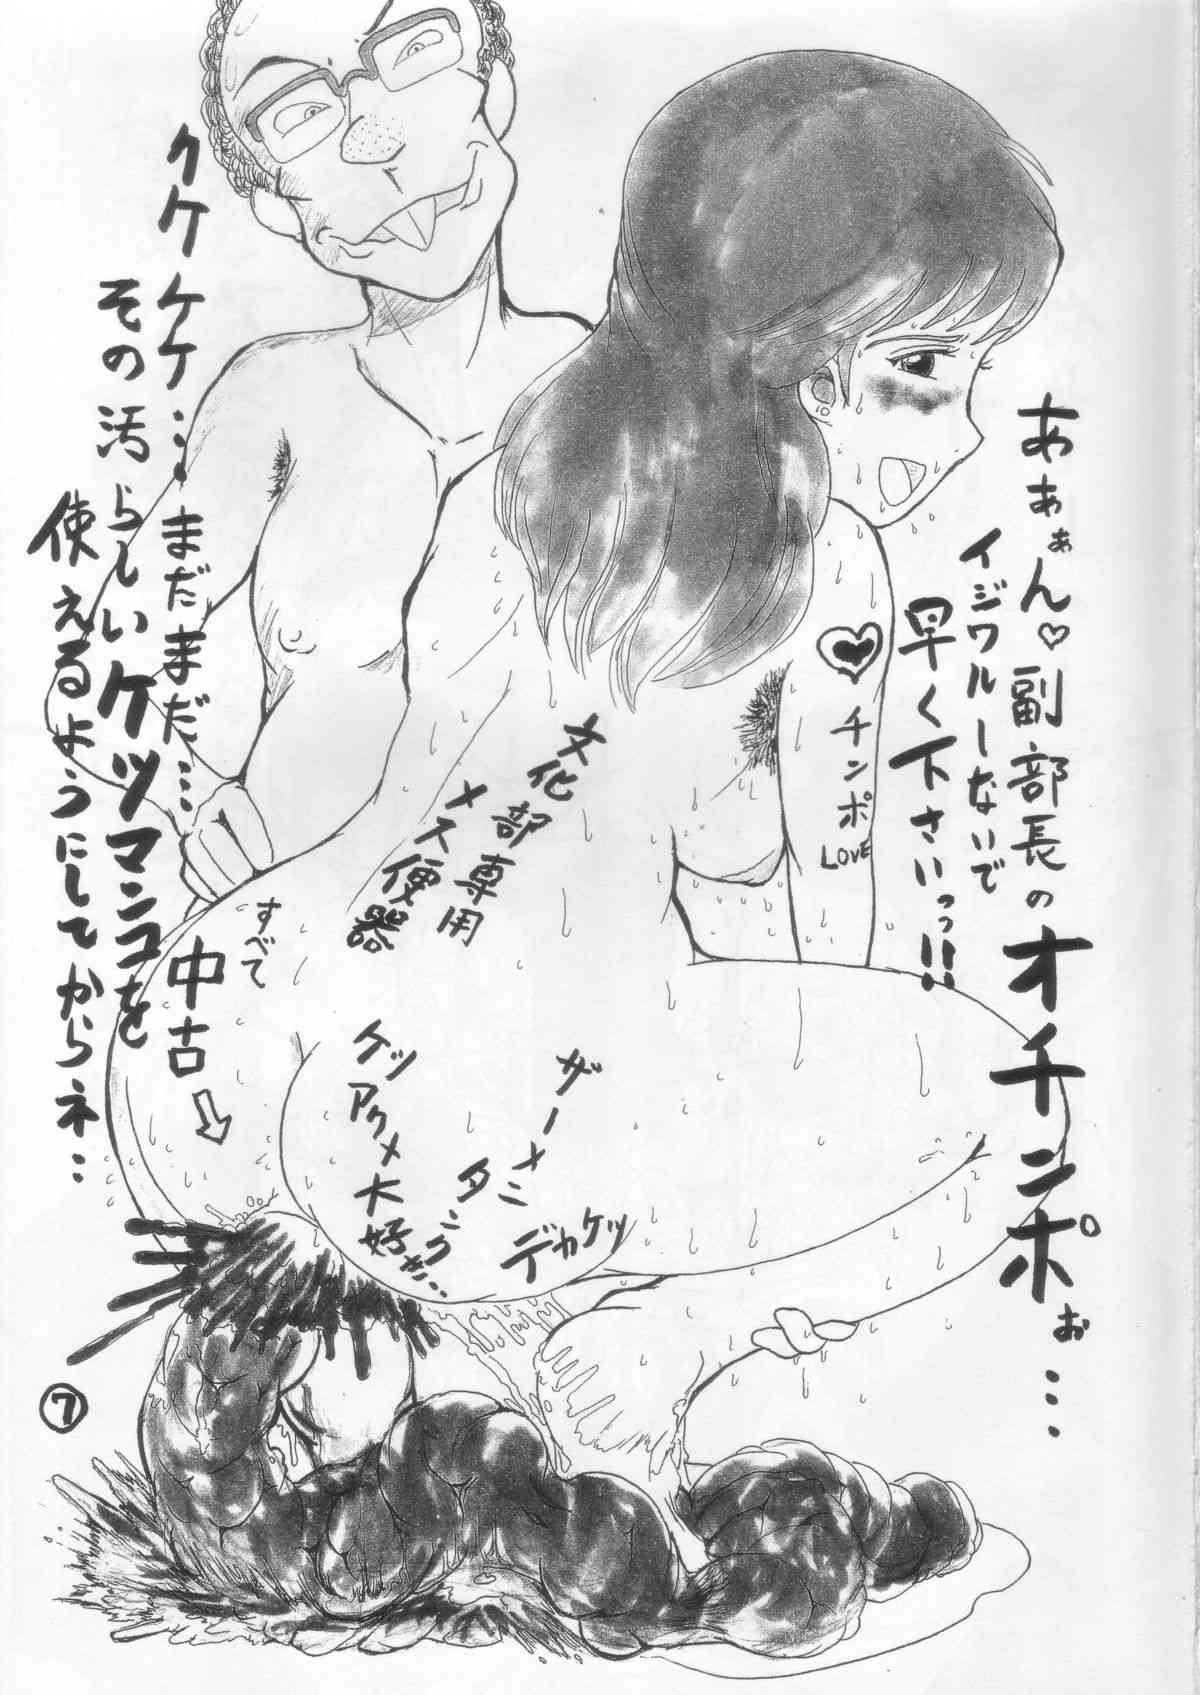 あぁぁん♡副部長の
オチンポぉ…
イジワルーないで
早く下さいっっ!!
チンポ
LOVE
文化部専用
メス便器
すべて
中古⇩
ケツアクメ大好き…
ザーメン
タンク
デカケツ
クケケケ…まだまだ…
その汚らしいケツマンコを
使えるようにしてからネ…
⑦